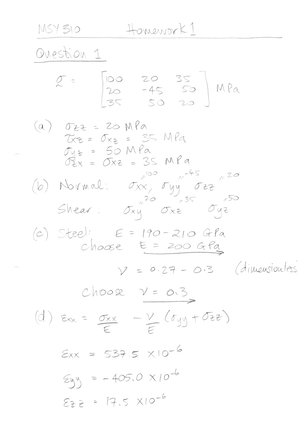 MSY 310 Homework 1
Question 1
σ = [100 20 35
20 -45 50
35 50 20] MPa
(a) σzz = 20 MPa
τxz = σxz = 35 MPa
σyz = 50 MPa
σzx = σxz = 35 MPa
(b) Normal: σxx, 100 σyy -45 σzz 20
Shear: σxy 20 σxz 35 σyz 50
(c) Steel: E = 190-210 GPa
choose E = 200 GPa
ν = 0.27 - 0.3 (dimensionless)
choose ν = 0.3
(d) εxx = σxx/E - ν/E (σyy + σzz)
εxx = 537.5 ×10⁻⁶
εyy = -405.0 ×10⁻⁶
εzz = 17.5 ×10⁻⁶